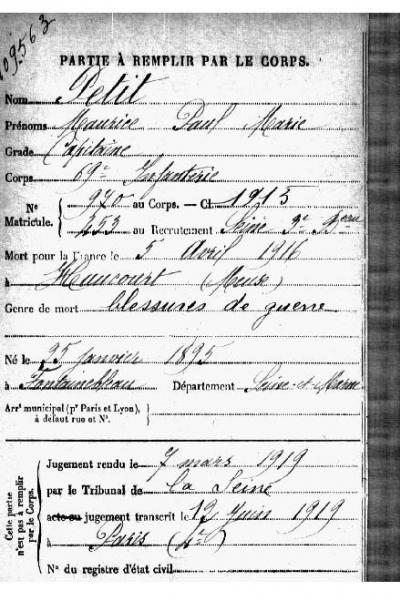 109563
PARTIE À REMPLIR PAR LE CORPS.
Nom Petit
Prénoms Maurice Paul Marie
Grade Capitaine
Corps 69e Infanterie
N° Matricule. { 970 au Corps. — Cl. 1915
353 au Recrutement Seine 3e Bau
Mort pour la France le 5 Avril 1916
à Haucourt (Meuse)
Genre de mort blessures de guerre
Né le 25 janvier 1895
à Fontainebleau Département Seine-et-Marne
Arrt municipal (pr Paris et Lyon), à défaut rue et N°. }
Cette partie n'est pas à remplir par le Corps.
Jugement rendu le 7 mars 1919
par le Tribunal de La Seine
acte ou jugement transcrit le 12 Juin 1919
à Paris
N° du registre d'état civil